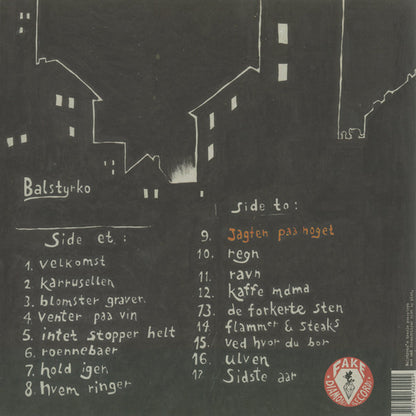 Balstyrko
Side et :
1. velkomst
2. karrusellen
3. blomster graven
4. venter paa vin
5. intet stopper helt
6. roennebaer
7. hold igen
8. hvem ringer
Side to :
9. Jagten paa noget
10. regn
11. ravn
12. kaffe mama
13. de forkerte sten
14. flammer & steaks
15. ved hvor du bor
16. ulven
17 Sidste aar
FAKE
DIAMOND RECORDS